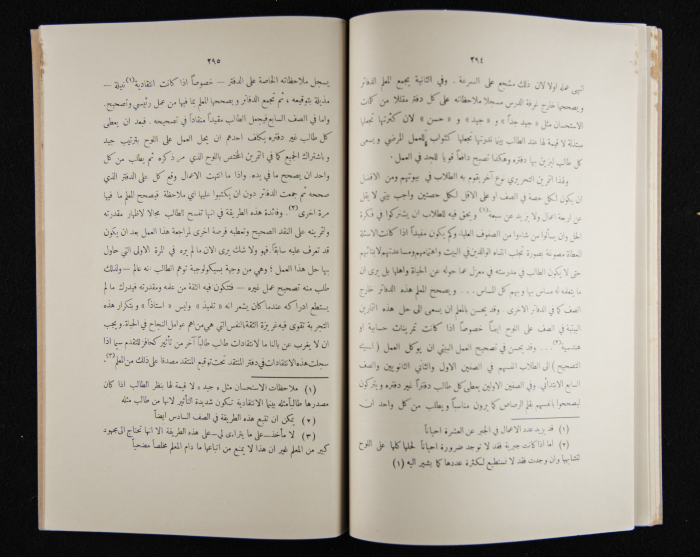 ٢٩٤
انهى عمله اولا لان ذلك مشجع على السرعة . وفي الثانية يجمع المعلم الدفاتر
ويصححها خارج غرفة الدرس مسجلا ملاحظاته على كل دفتر مقللا من كلمات
الاستحسان مثل « جيد جداً » و « جيد » و « حسن » لان كثرتها تجعلها
مبتذلة لا قيمة لها عند الطالب بينما ندرتها تجعلها كثواب للعمل المرضي ويسعى
كل طالب ليزين بها دفتره وهكذا تصبح دافعاً قويا للجد في العمل .
ولهذا التمرين التحريري نوع آخر يقوم به الطلاب في بيوتهم ومن الافضل
ان يكون لكل حصة في الصف او على الاقل لكل حصتين واجب بيتي لا يقل
عن اربعة اعمال ولا يزيد عن سبعة (١) ويحق فيه للطلاب ان يشتركوا في فكرة
الحل وان يسألوا من شاءوا من الصفوف العليا، وكم يكون مفيداً اذا كانت الاسئلة
المعطاة مصوغة بصورة تجلب انتباه الوالدين في البيت واهتمامهم ومساعدتهم لابنائهم
حتى لا يكون الطالب في مدرسته في معزل عما حوله عن الحياة واهلها بل يرى ان
ما يتعلمه له مساس بها وبهم كل المساس . . . ويصحح المعلم هذه الدفاتر خارج
الصف كما في الدفاتر الاخرى وقد يحسن بالمعلم ان يسعى الى حل هذه التمارين
البيتية في الصف على اللوح ايضاً خصوصاً اذا كانت تمرينات حسابية او
هندسية (٢) . . . وقد يحسن في تصحيح العمل البيتي ان يوكل العمل ( اسيئ
التصحيح ) الى الطلاب انفسهم في الصفين الاول والثاني الثانويين والصف
السابع الابتدائي وفي الصفين الاولين يعطى كل طالب دفتراً غير دفتره ويتركون
ليصححوا بانفسهم بقلم الرصاص كما يرون مناسباً ويطلب من كل واحد ان
(١) قد يزيد عدد الاعمال في الجبر عن العشرة احياناً
(٢) اما اذا كانت جبرية فقد لا توجد ضرورة احياناً لحلها كلها على اللوح
لتشابهها وان وجدت فقد لا نستطيع لكثرة عددها كما يشير اليه (١)
٢٩٥
يسجل ملاحظاته الخاصة على الدفتر – خصوصاً اذا كانت انتقادية (١) نبيلة –
مذيلة بتوقيعه ، ثم تجمع الدفاتر ويصححها المعلم بما فيها من عمل رئيسي وتصحيح.
واما في الصف السابع فيجعل الطالب مقيداً منقاداً في تصحيحه . فبعد ان يعطى
كل طالب غير دفتره يكلف احدهم ان يحل العمل على اللوح بترتيب جيد
و باشتراك الجميع كما في التمرين المختص باللوح الذي مر ذكره ثم يطلب من كل
واحد ان يصحح ما في يده. واذا ما انتهت الاعمال وقع كل على الدفتر الذي
صححه ثم جمعت الدفاتر دون ان يكتبوا عليها اي ملاحظة فيصحح المعلم ما فيها
مرة اخرى (٢). وفائدة هذه الطريقة في انها تفسح الطالب مجالا لاظهار مقدرته
وتمرينه على النقد الصحيح وتعطيه فرصة اخرى لمراجعة هذا العمل بعد ان يكون
قد تعرف عليه سابقاً. فهو ولا شك يرى الان ما لم يره في المرة الاولى التي حاول
بها حل هذا العمل ؛ وهي من وجهة بسيكولوجية توهم الطالب انه عالم – ولذلك
طلب منه تصحيح عمل غيره – فتتكون فيه الثقة من علمه ومقدرته فيدرك ما لم
يستطع ادراكه عندما كان يشعر انه « تلميذ » وليس « استاذاً » و بتكرار هذه
التجربة تقوى فيه غريزة الثقة بالنفس التي هي من اهم عوامل النجاح في الحياة. ويجب
ان لا يغرب عن بالنا ما لانتقادات طالب طالباً آخر من تأثير كحافز للتقدم سيما اذا
سجلت هذه الانتقادات في دفتر المنتقد تحت توقيع المنتقد مصدقا على ذلك من المعلم (٣).
(١) ملاحظات الاستحسان مثل « جيد » لا قيمة لها بنظر الطالب اذا كان
مصدرها طالباً مثله بينما الانتقادية تكون شديدة التأثير لانها من طالب مثله
(٢) يمكن ان تتبع هذه الطريقة في الصف السادس ايضاً
(٣) لا مأخذ – على ما يتراءى لي – على هذه الطريقة الا انها تحتاج الى مجهود
كبير من المعلم غير ان هذا لا يمنع من اتباعها ما دام المعلم مخلصاً مضحياً